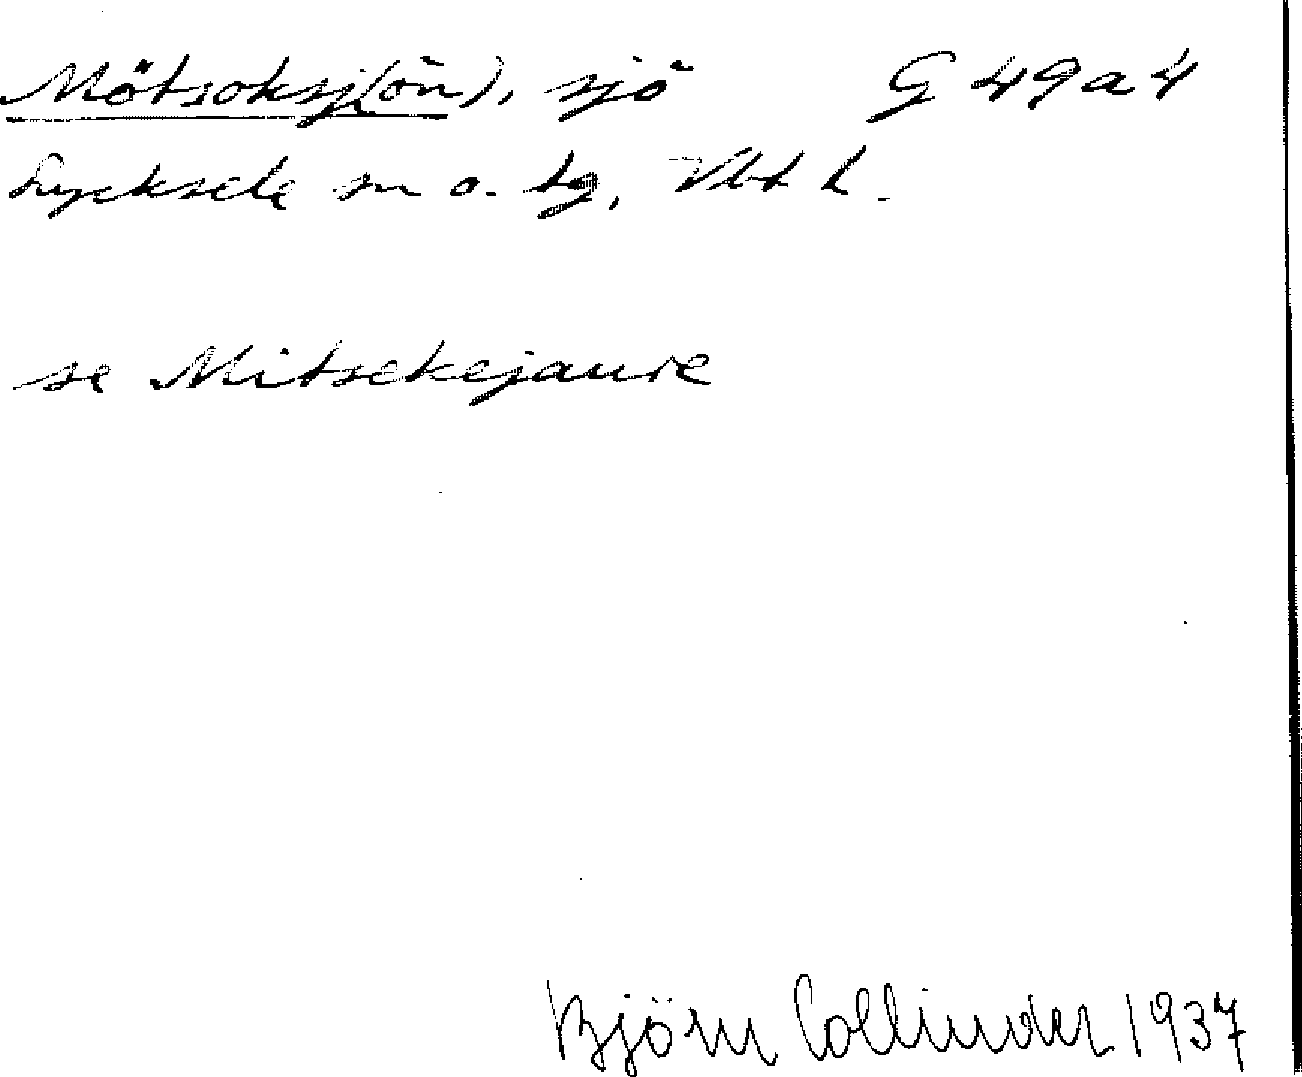 Mötsoksj(ön), sjö G 49a4
Lycksele sn o. tg, Vbt l.
se Mitsekejaure
Björn Collinder 1937